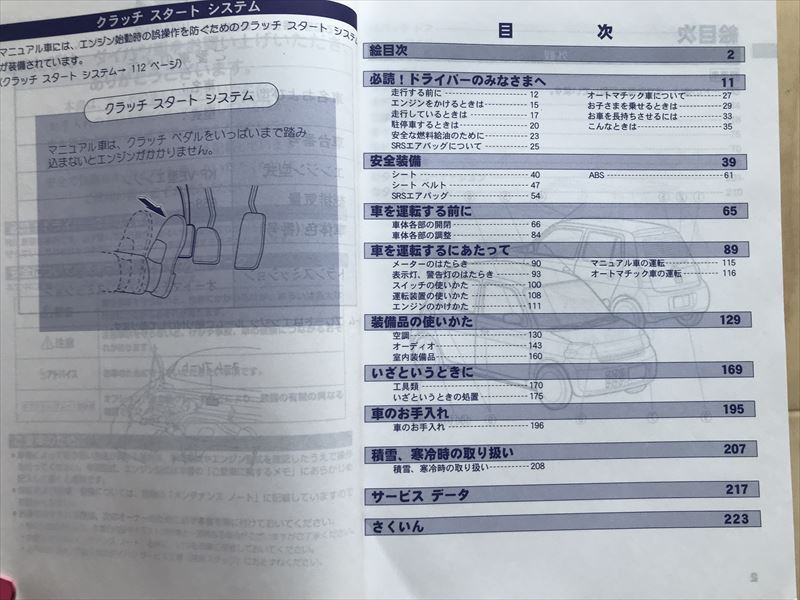 クラッチ スタート システム
マニュアル車には、エンジン始動時の誤操作を防ぐためのクラッチ スタート システム
が装備されています。
(クラッチ スタート システム→ 112 ページ)
クラッチ スタート システム
マニュアル車は、クラッチ ペダルをいっぱいまで踏み
込まないとエンジンがかかりません。
目 次
絵目次 2
必読！ドライバーのみなさまへ 11
走行する前に 12
エンジンをかけるときは 15
走行しているときは 17
駐停車するときは 20
安全な燃料給油のために 23
SRSエアバッグについて 25
オートマチック車について 27
お子さまを乗せるときは 29
お車を長持ちさせるには 33
こんなときは 35
安全装備 39
シート 40
シート ベルト 47
SRSエアバッグ 54
ABS 61
車を運転する前に 65
車体各部の開閉 66
車体各部の調整 84
車を運転するにあたって 89
メーターのはたらき 90
表示灯、警告灯のはたらき 93
スイッチの使いかた 100
運転装置の使いかた 108
エンジンのかけかた 111
マニュアル車の運転 115
オートマチック車の運転 116
装備品の使いかた 129
空調 130
オーディオ 143
室内装備品 160
いざというときに 169
工具類 170
いざというときの処置 175
車のお手入れ 195
車のお手入れ 196
積雪、寒冷時の取り扱い 207
積雪、寒冷時の取り扱い 208
サービス データ 217
さくいん 223